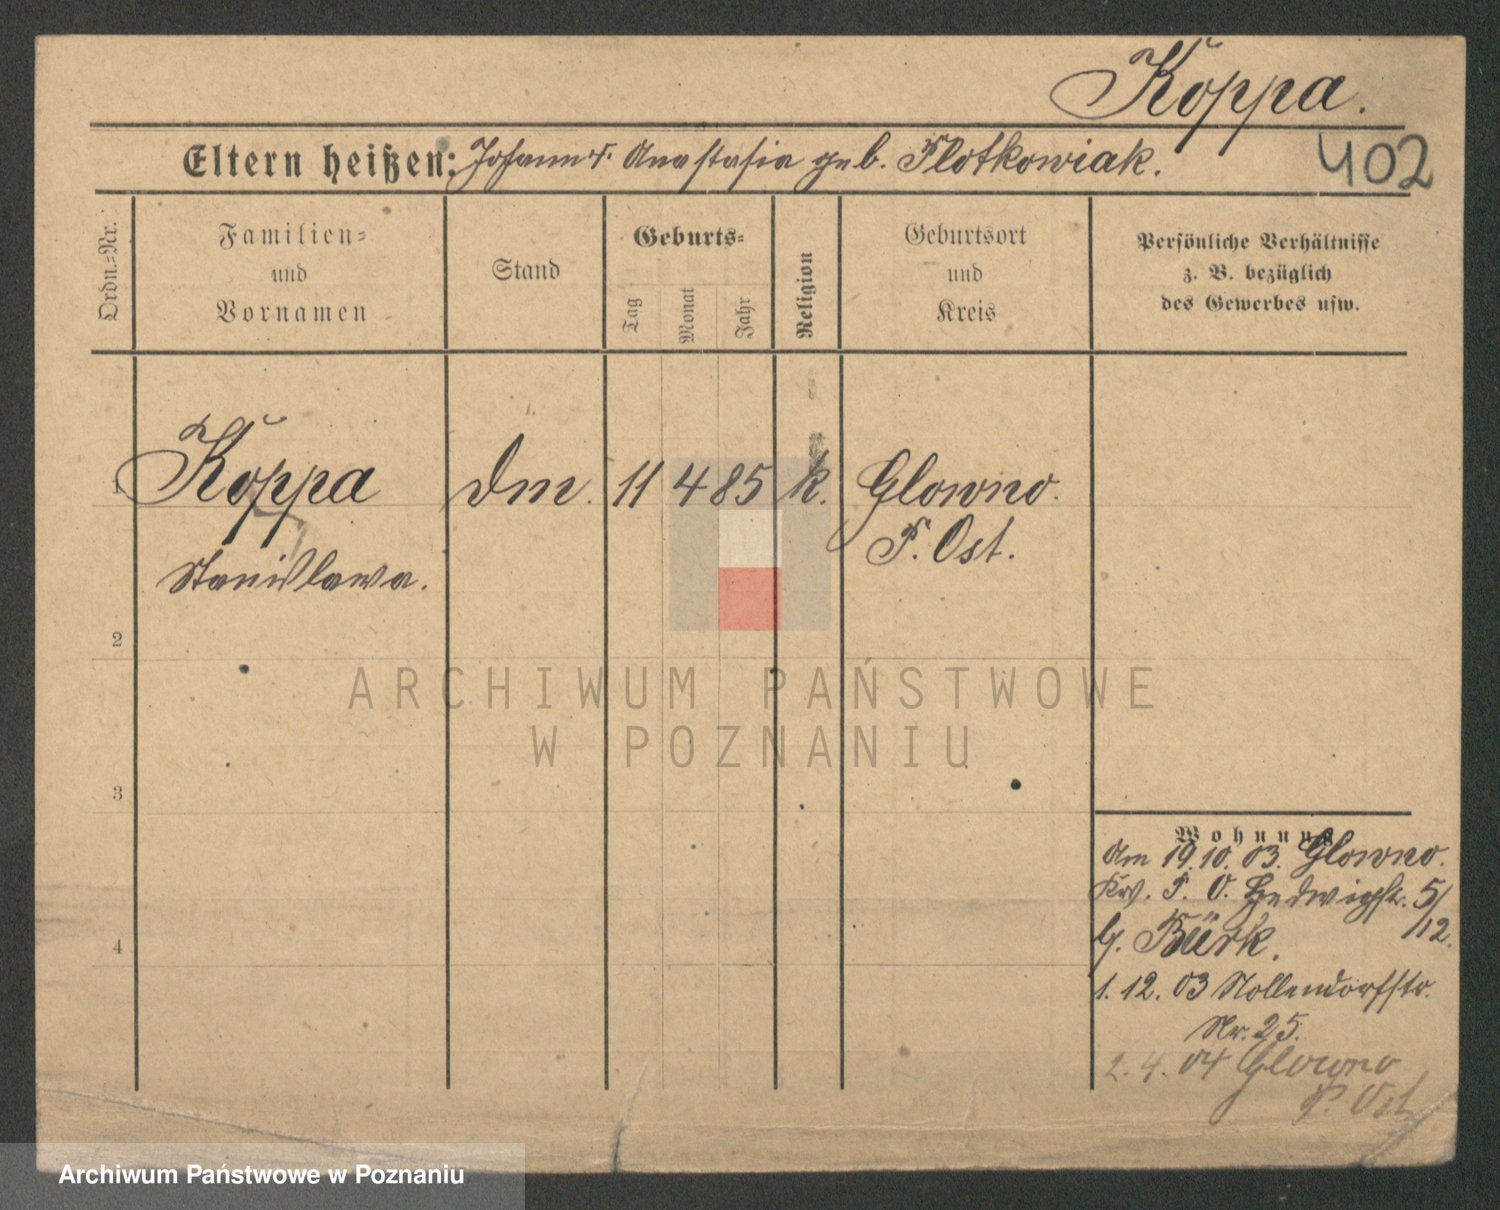 Koppa.
Eltern heißen: Johann u. Anastasia geb. Plotkowiak.
402
Ordn.-Nr.
Familien-
und
Vornamen
Stand
Geburts-
Tag
Monat
Jahr
Religion
Geburtsort
und
Kreis
Persönliche Verhältnisse
z. B. bezüglich
des Gewerbes usw.
1 Koppa Dm. 11 4 85 k. Glowno.
P. Ost.
Stanislawa.
2
3
4
ARCHIWUM PAŃSTWOWE
W POZNANIU
Wohnung
Am 19.10.03. Glowno.
Krs. P. O. Hedwigstr. 5/
12.
b. Bürk.
1. 12. 03 Nollendorfstr.
Nr. 25.
2. 4. 04 Glowno
P. Ost
Archiwum Państwowe w Poznaniu